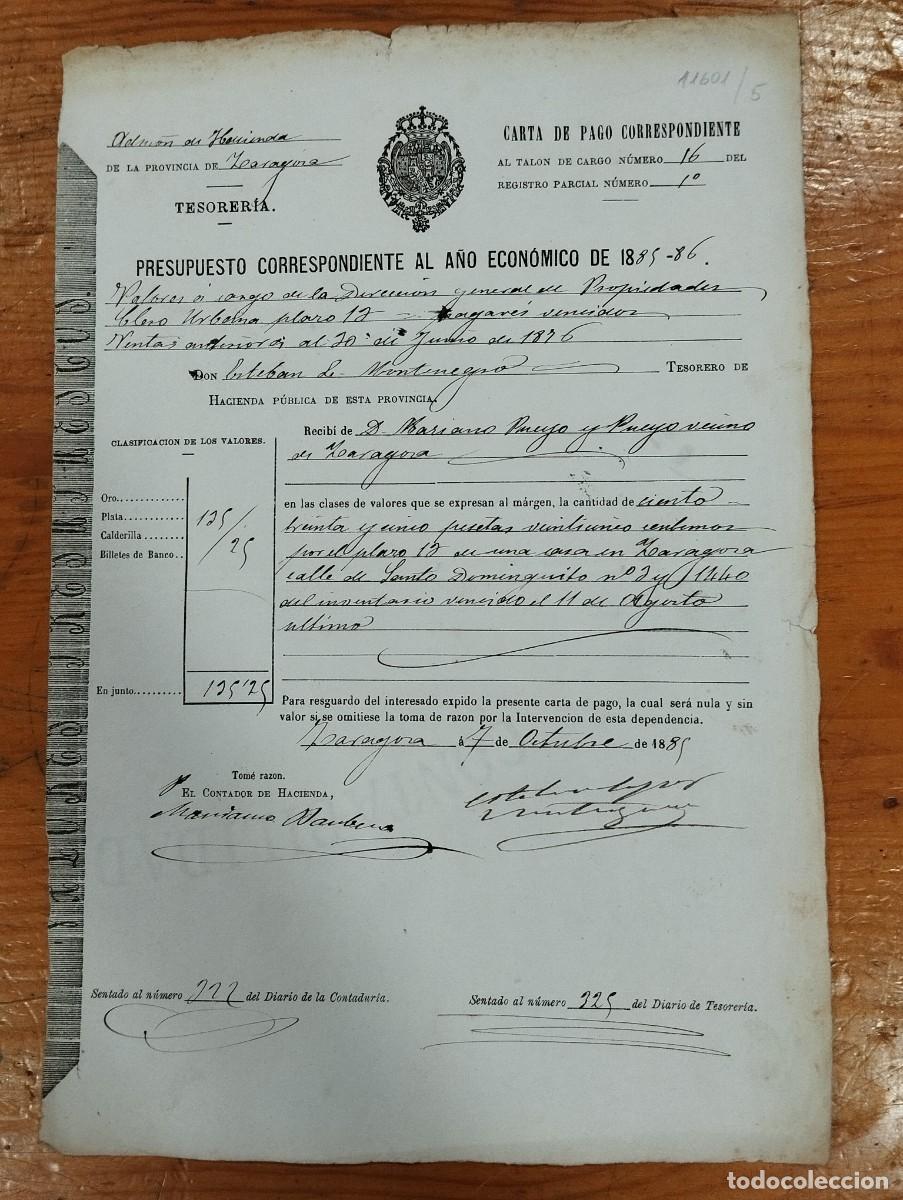 11601/5
Admón de Hacienda
DE LA PROVINCIA DE Zaragoza
TESORERÍA.
CARTA DE PAGO CORRESPONDIENTE
AL TALON DE CARGO NÚMERO 16 DEL
REGISTRO PARCIAL NÚMERO 1º
PRESUPUESTO CORRESPONDIENTE AL AÑO ECONÓMICO DE 1885-86.
Valores á cargo de la Dirección general de Propiedades
Clero Urbana plazo 12 = Pagarés vencidos
Ventas anteriores al 30 de Junio de 1876
DON Esteban L. Montenegro TESORERO DE
HACIENDA PÚBLICA DE ESTA PROVINCIA.
CLASIFICACION DE LOS VALORES.
Recibí de D. Mariano Pueyo y Pueyo vecino
de Zaragoza
Oro
Plata 135/
Calderilla /25
Billetes de Banco
en las clases de valores que se expresan al márgen, la cantidad de ciento
treinta y cinco pesetas veinticinco centimos
por el plazo 12 de una casa en Zaragoza
calle de Santo Dominguito nº 2 y 1440
del inventario vencido el 11 de Agosto
ultimo
En junto 135'25
Para resguardo del interesado expido la presente carta de pago, la cual será nula y sin
valor si se omitiese la toma de razon por la Intervencion de esta dependencia.
Zaragoza á 7 de Octubre de 1885
Tomé razon.
EL CONTADOR DE HACIENDA,
Mariano
Sentado al número 222 del Diario de la Contaduría.
Sentado al número 225 del Diario de Tesorería.
todocoleccion